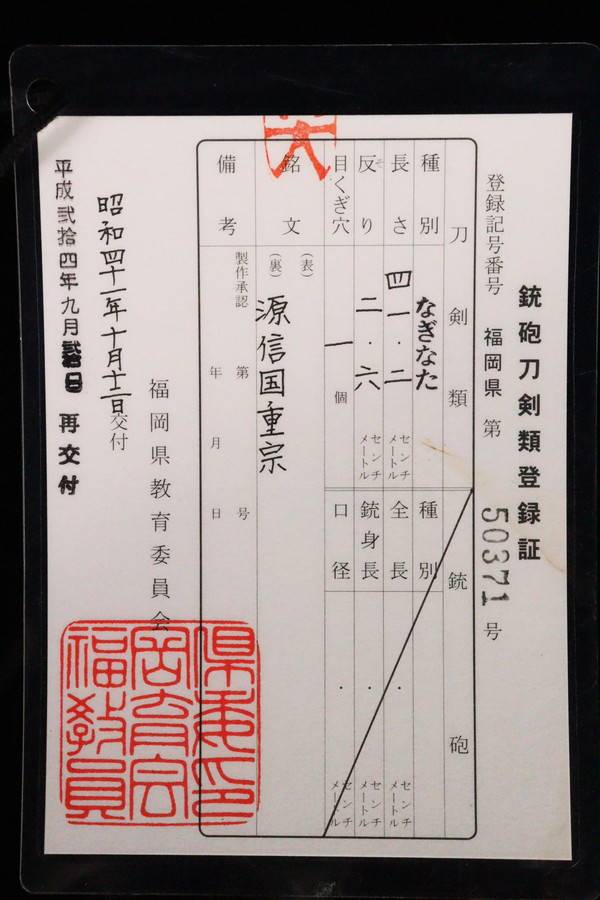 銃砲刀剣類登録証
登録記号番号 福岡県 第 50371 号
刀剣類
種別 なぎなた
長さ 四一.二 センチメートル
反り 二.六 センチメートル
目くぎ穴 一 個
銘文 (表)
(裏) 源信国重宗
備考 製作承認 第 号
年 月 日
銃砲
種別
全長 . センチメートル
銃身長 . センチメートル
口径 . センチメートル
福岡県教育委員会
昭和四十一年十月十二日交付
平成弐拾四年九月弐拾日 再交付
県委印
岡育会
福教員